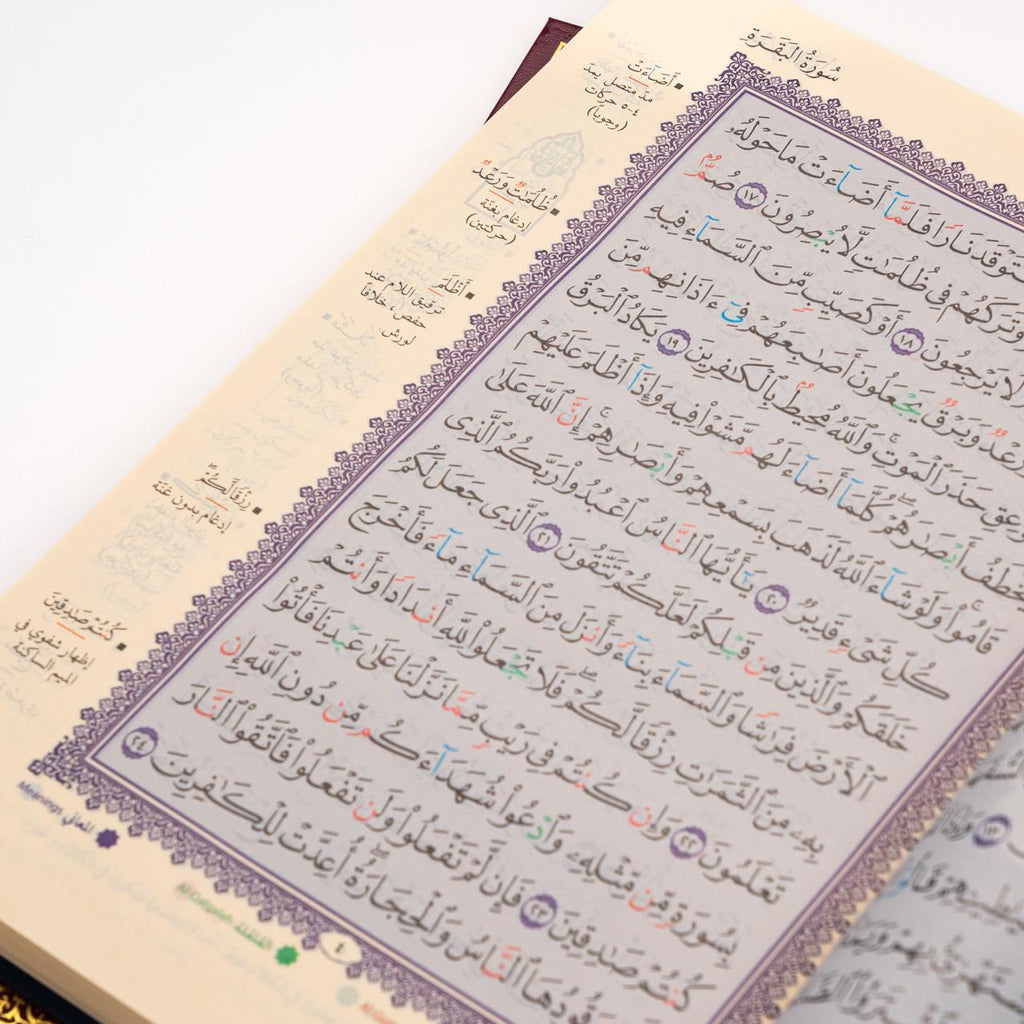 سُورَةُ الْبَقَرَةِ
نَارًا فَلَمَّآ أَضَآءَتْ مَا حَوْلَهُۥ
وَتَرَكَهُمْ فِى ظُلُمَٰتٍ لَّا يُبْصِرُونَ ١٧ صُمٌّۢ
لَا يَرْجِعُونَ ١٨ أَوْ كَصَيِّبٍ مِّنَ ٱلسَّمَآءِ فِيهِ
وَرَعْدٌ وَبَرْقٌ يَجْعَلُونَ أَصَٰبِعَهُمْ فِىٓ ءَاذَانِهِم مِّنَ
حَذَرَ ٱلْمَوْتِ ۚ وَٱللَّهُ مُحِيطٌۢ بِٱلْكَٰفِرِينَ ١٩ يَكَادُ ٱلْبَرْقُ
يَخْطَفُ أَبْصَٰرَهُمْ ۖ كُلَّمَآ أَضَآءَ لَهُم مَّشَوْا۟ فِيهِ وَإِذَآ أَظْلَمَ عَلَيْهِمْ
قَامُوا۟ ۚ وَلَوْ شَآءَ ٱللَّهُ لَذَهَبَ بِسَمْعِهِمْ وَأَبْصَٰرِهِمْ ۚ إِنَّ ٱللَّهَ عَلَىٰ
كُلِّ شَىْءٍ قَدِيرٌ ٢٠ يَٰٓأَيُّهَا ٱلنَّاسُ ٱعْبُدُوا۟ رَبَّكُمُ ٱلَّذِى
خَلَقَكُمْ وَٱلَّذِينَ مِن قَبْلِكُمْ لَعَلَّكُمْ تَتَّقُونَ ٢١ ٱلَّذِى جَعَلَ لَكُمُ
ٱلْأَرْضَ فِرَٰشًا وَٱلسَّمَآءَ بِنَآءً وَأَنزَلَ مِنَ ٱلسَّمَآءِ مَآءً فَأَخْرَجَ
بِهِۦ مِنَ ٱلثَّمَرَٰتِ رِزْقًا لَّكُمْ ۖ فَلَا تَجْعَلُوا۟ لِلَّهِ أَندَادًا وَأَنتُمْ
تَعْلَمُونَ ٢٢ وَإِن كُنتُمْ فِى رَيْبٍ مِّمَّا نَزَّلْنَا عَلَىٰ عَبْدِنَا فَأْتُوا۟
بِسُورَةٍ مِّن مِّثْلِهِۦ وَٱدْعُوا۟ شُهَدَآءَكُم مِّن دُونِ ٱللَّهِ إِن
كُنتُمْ صَٰدِقِينَ ٢٣ فَإِن لَّمْ تَفْعَلُوا۟ وَلَن تَفْعَلُوا۟ فَٱتَّقُوا۟ ٱلنَّارَ
وَقُودُهَا ٱلنَّاسُ وَٱلْحِجَارَةُ ۖ أُعِدَّتْ لِلْكَٰفِرِينَ ٢٤
أَضَآءَتْ
مدّ متصل يمدّ
٤-٥ حركات
(وجوباً)
ظُلُمَٰتٌ وَرَعْدٌ
إدغام بغنّة
(حركتين)
أَظْلَمَ
ترقيق اللام عند
حفص خلافاً
لورش
رِزْقًا لَّكُمْ
إدغام بدون غنّة
كُنتُمْ صَٰدِقِينَ
إظهار شفوي في
الميم الساكنة
المعاني Meanings
القلقلة Al-Qalqalah
٤